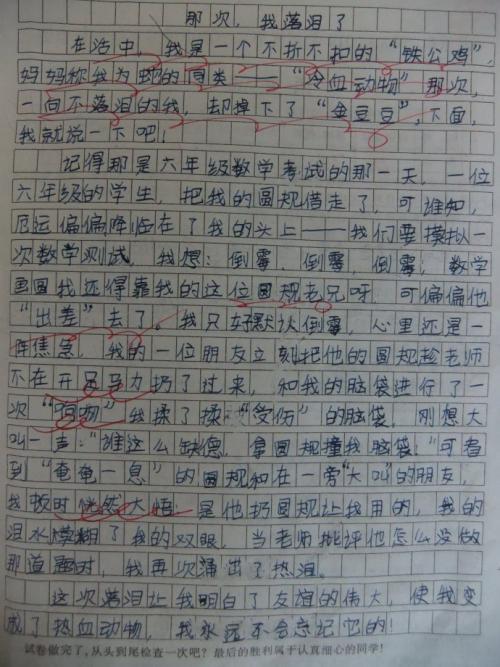 那次，我落泪了
在活中，我是一个不折不扣的“铁公鸡”，
妈妈称我为蛇的同类——“冷血动物”那次，
一向不落泪的我，却掉下了“金豆豆”，下面，
我就说一下吧！
记得那是六年级数学考试的那一天，一位
六年级的学生，把我的圆规借走了，可谁知，
厄运偏偏降临在了我的头上——我们要模拟一
次数学测试。我想：倒霉，倒霉，倒霉；数学
画圆我还得靠我的这位圆规老兄呀，可偏偏他
“出差”去了。我只好默认倒霉，心里还是一
阵焦急，我的一位朋友立刻把他的圆规趁老师
不在开足马力扔了过来，和我的脑袋进行了一
次“亲吻”我揉了揉“受伤”的脑袋，刚想大
叫一声：“谁这么缺德，拿圆规撞我脑袋，”可看
到“奄奄一息”的圆规和在一旁“大叫”的朋友，
我顿时恍然大悟：是他扔圆规让我用的，我的
泪水模糊了我的双眼，当老师批评他怎么没做
那道题时，我再次涌出了热泪。
这次落泪让我明白了友谊的伟大，使我变
成了热血动物，我永远不会忘记它的！
试卷做完了，从头到尾检查一次吧？最后的胜利属于认真细心的同学！